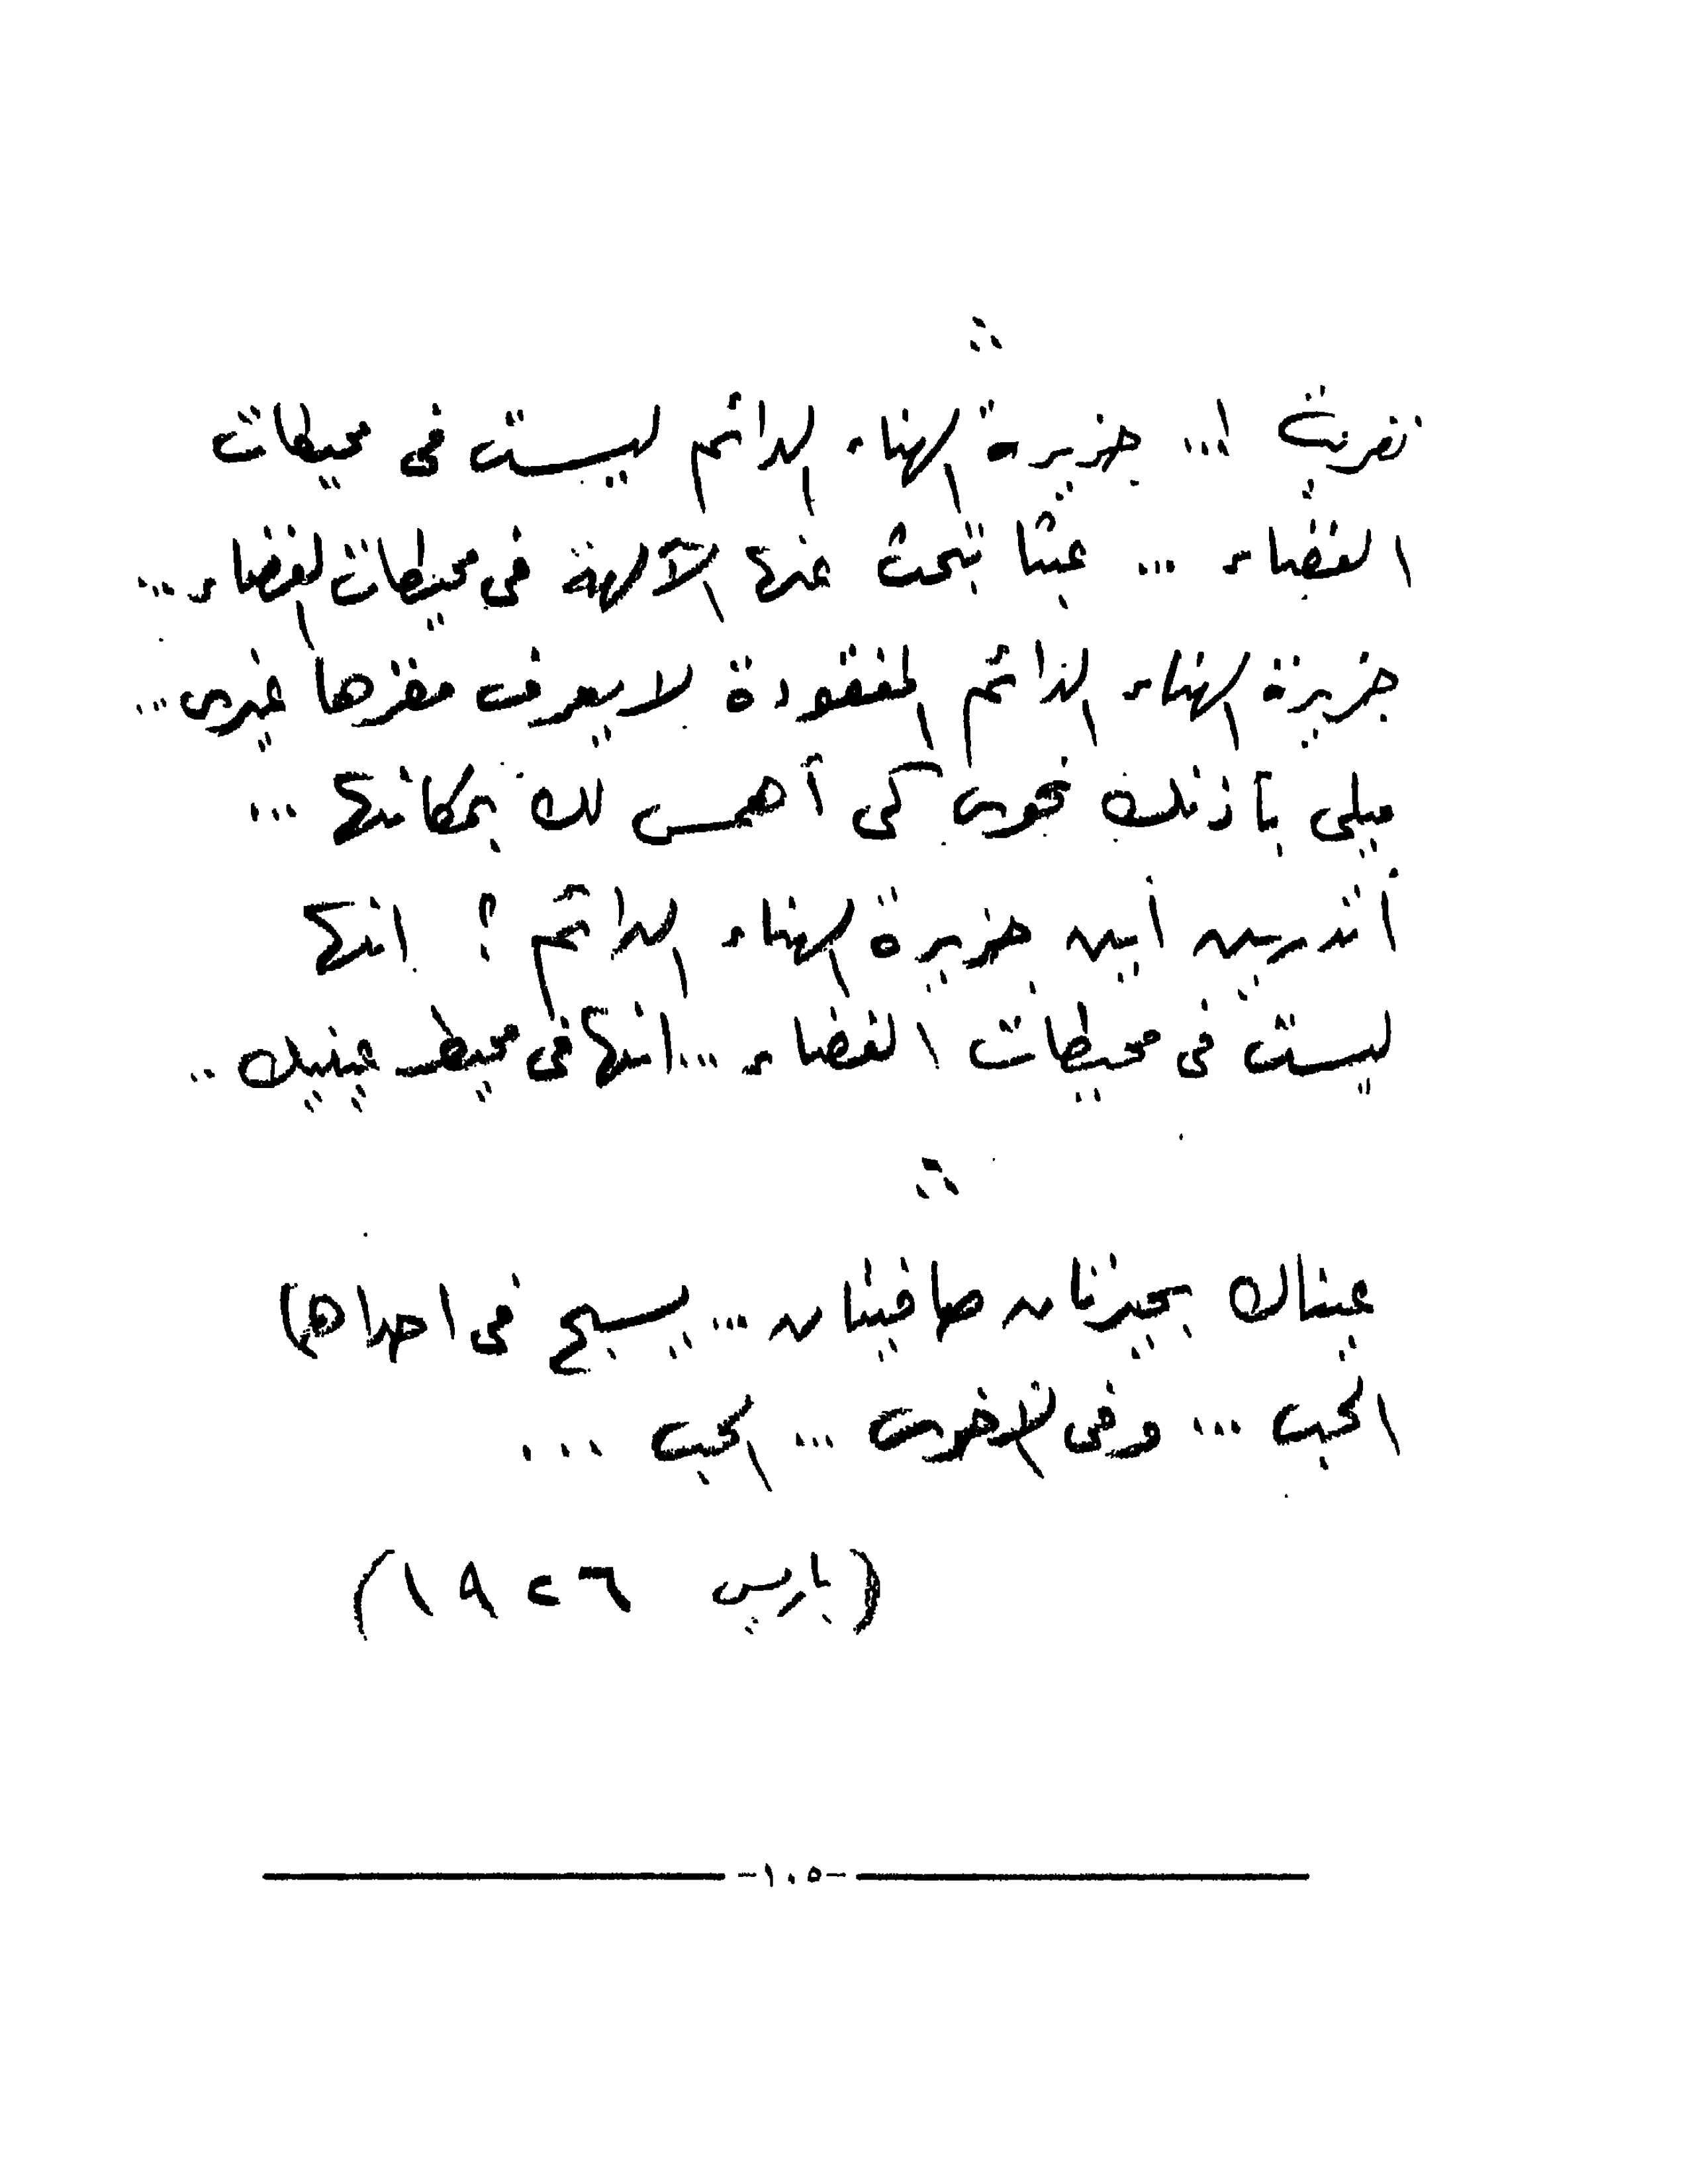 ∴
نفريت !... جزيرة الهناء الدائم ليست فى محيطات
الفضاء ... عبثا تبحث عنها الآلهة فى محيطات الفضاء ...
جزيرة الهناء الدائم المفقودة لا يعرف مقرها غيرى ...
ميلى بأذنك نحوى كى أهمس لك بمكانها ...
أتدرين أين جزيرة الهناء الدائم ؟ انها
ليست فى محيطات الفضاء ... انها فى محيط عينيك ..
∴
عيناك بحيرتان صافيتان ... يسبح فى احداها
الحب ... وفى الأخرى ... الحب ...
(باريس ١٩٢٦)
-١٠٥-